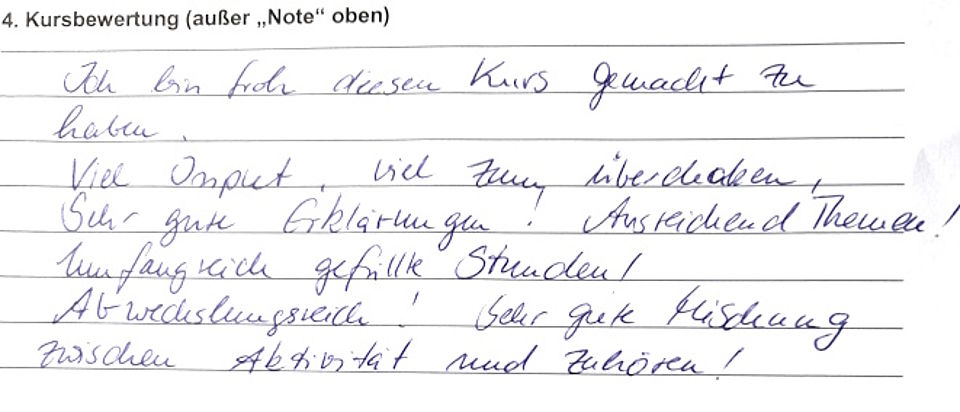 4. Kursbewertung (außer „Note“ oben)
Ich bin froh diesen Kurs gemacht zu
haben.
Viel Input, viel zum überdenken,
Sehr gute Erklärungen! Ausreichend Themen!
Umfangreich gefüllte Stunden!
Abwechslungsreich! Sehr gute Mischung
zwischen Aktivität und Zuhören!